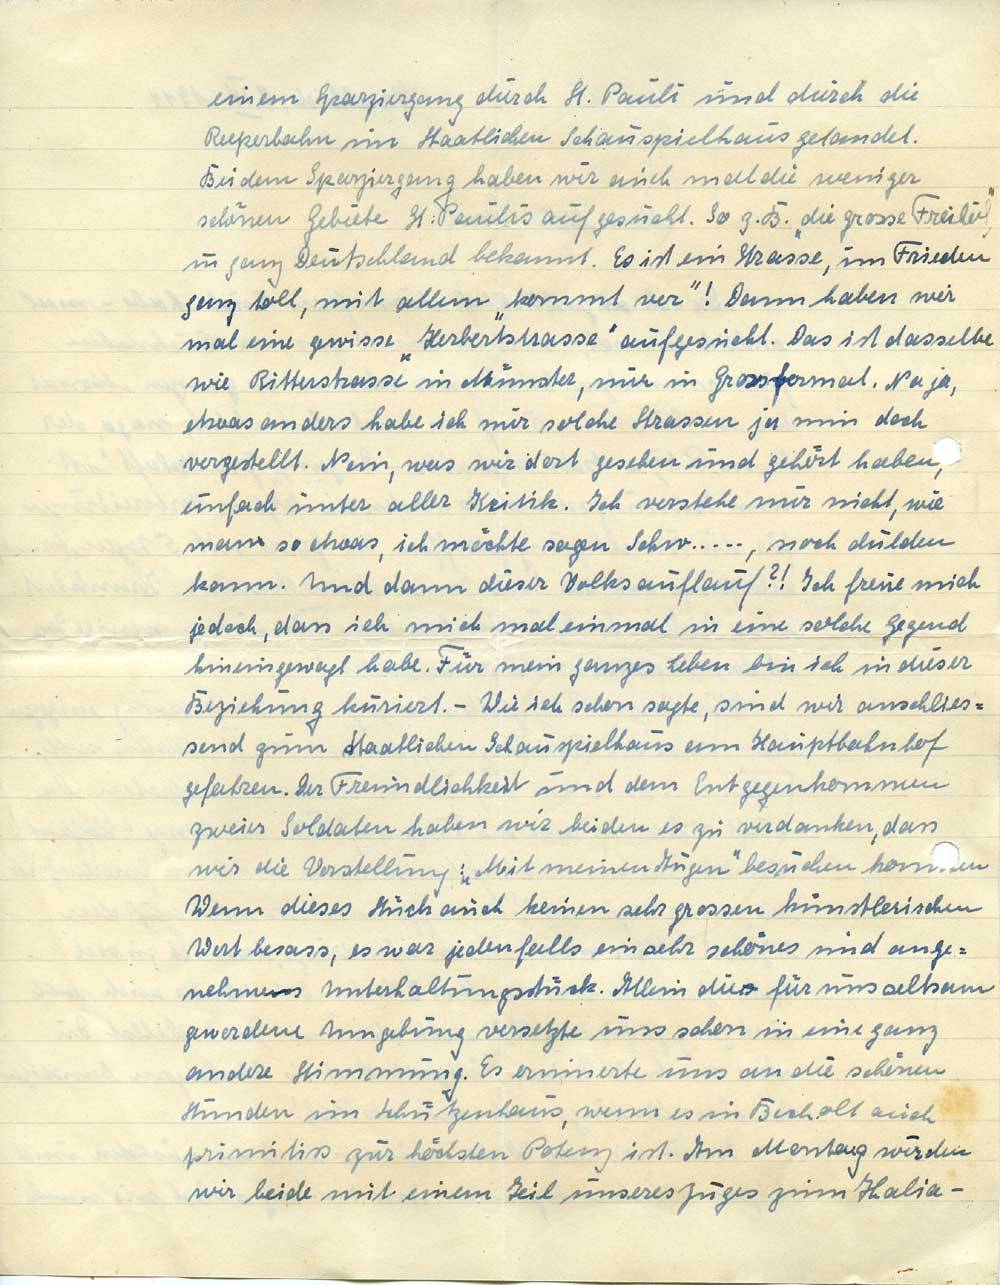 einem Sparziergang durch St. Pauli und durch die
Reeperbahn im Staatlichen Schauspielhaus gelandet.
Bei dem Sparziergang haben wir auch mal die weniger
schönen Gebiete St. Paulis aufgesucht. So z. B. "die grosse Freiheit",
in ganz Deutschland bekannt. Es ist ein Strasse, im Frieden
ganz toll, mit allem "kommt vor"! Dann haben wir
mal eine gewisse "Herbertstrasse" aufgesucht. Das ist dasselbe
wie Ritterstrasse in Münster, nur in Grossformat. Na ja,
etwas anders habe ich mir solche Strassen ja nun doch
vorgestellt. Nein, was wir dort gesehen und gehört haben,
einfach unter aller Kritik. Ich verstehe nur nicht, wie
man so etwas, ich möchte sagen Schw....., noch dulden
kann. Und dann dieser Volksauflauf?! Ich freue mich
jedoch, dass ich mich mal einmal in eine solche Gegend
hineingewagt habe. Für mein ganzes Leben bin ich in dieser
Beziehung kuriert. – Wie ich schon sagte, sind wir anschlies=
send zum Staatlichen Schauspielhaus am Hauptbahnhof
gefahren. Der Freundlichkeit und dem Entgegenkommen
zweier Soldaten haben wir beiden es zu verdanken, dass
wir die Vorstellung: "Mit meinen Augen" besuchen konnten
Wenn dieses Stück auch keinen sehr grossen künstlerischen
Wert besass, es war jedenfalls ein sehr schönes und ange=
nehmens Unterhaltungsstück. Allein die für uns seltsam
gewordene Umgebung versetzte uns schon in eine ganz
andere Stimmung. Es erinnerte uns an die schönen
Stunden im Schützenhaus, wenn es in Bocholt auch
primitiv zur höchsten Potenz ist. Am Montag würden
wir beide mit einem Teil unseres Zuges zum Thalia–